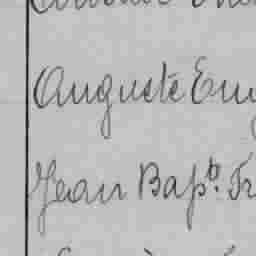 Auguste Eug
Jean Bapt. Fr